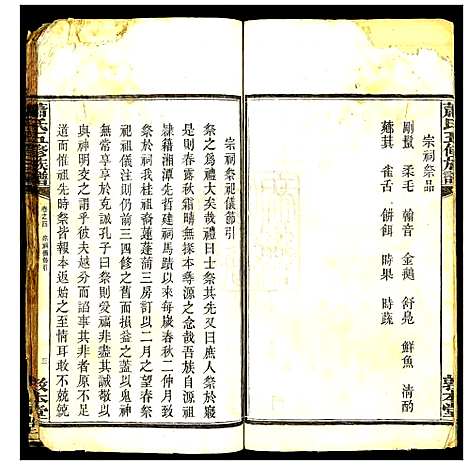 蕭氏五修族譜
宗祠祭品
剛鬣 柔毛 翰音 金鵝 舒鳧 鮮魚 清酌
薌萁 雀舌 餅餌 時果 時蔬
敦本堂
宗祠祭祀儀節引
祭之爲禮大矣哉禮曰士祭其先又曰庶人祭於寢
則是春露秋霜晴無探本尋源之念哉吾族自源祖
隸籍湘潭先哲建祠馬蹟以來每歲春秋二仲月致
祭於祠我桂祖裔蓮蒲三房訂以二月之望春祭
祀祖儀注前三四修之舊
升降至於克誠孔子曰祭則受福是以鬼神
與神明交之謂乎彼夫越分而諂事其非者原不足
道而惟祖先時祭皆報本返始之至情耳敢不兢兢
蕭氏五修族譜
卷之四 宗祠儀節引
三
敦本堂